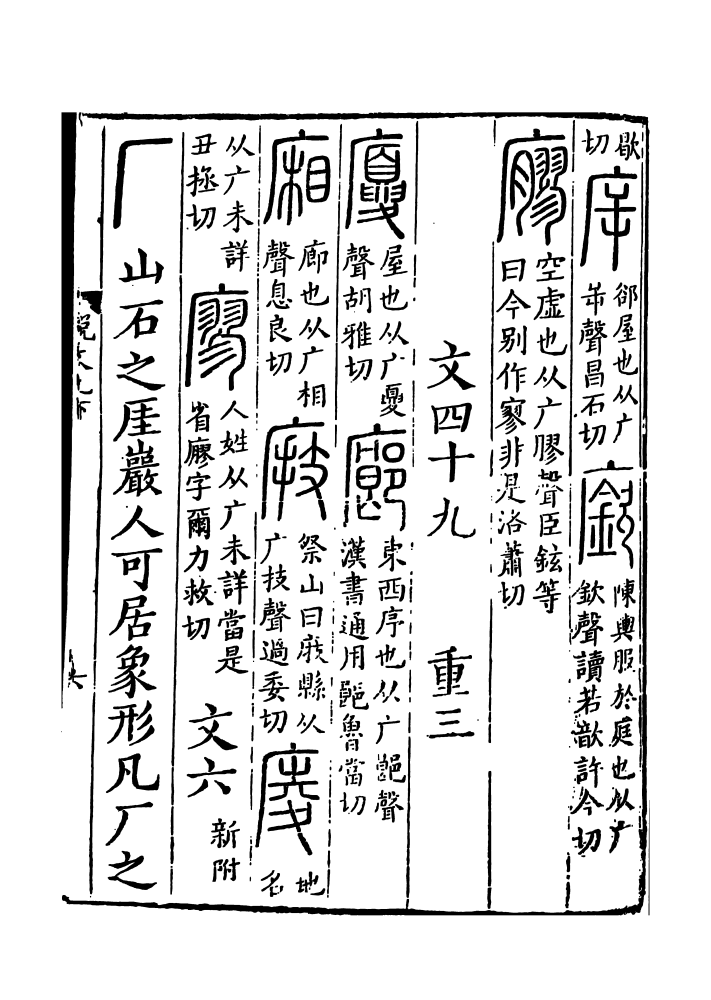 歇切㡿郤屋也从广屰聲昌石切廞陳輿服於庭也从广欽聲讀若歆許今切
廫空虛也从广膠聲臣鉉等曰今別作寥非是洛蕭切
文四十九　重三
廈屋也从广夏聲胡雅切廊東西序也从广郎聲漢書通用郎魯當切
廂廊也从广相聲息良切庪祭山曰庪縣从广技聲過委切庱地名
从广未詳丑拯切廖人姓从广未詳當是省廫字爾力救切　文六　新附
厂山石之厓巖人可居象形凡厂之
說文九下